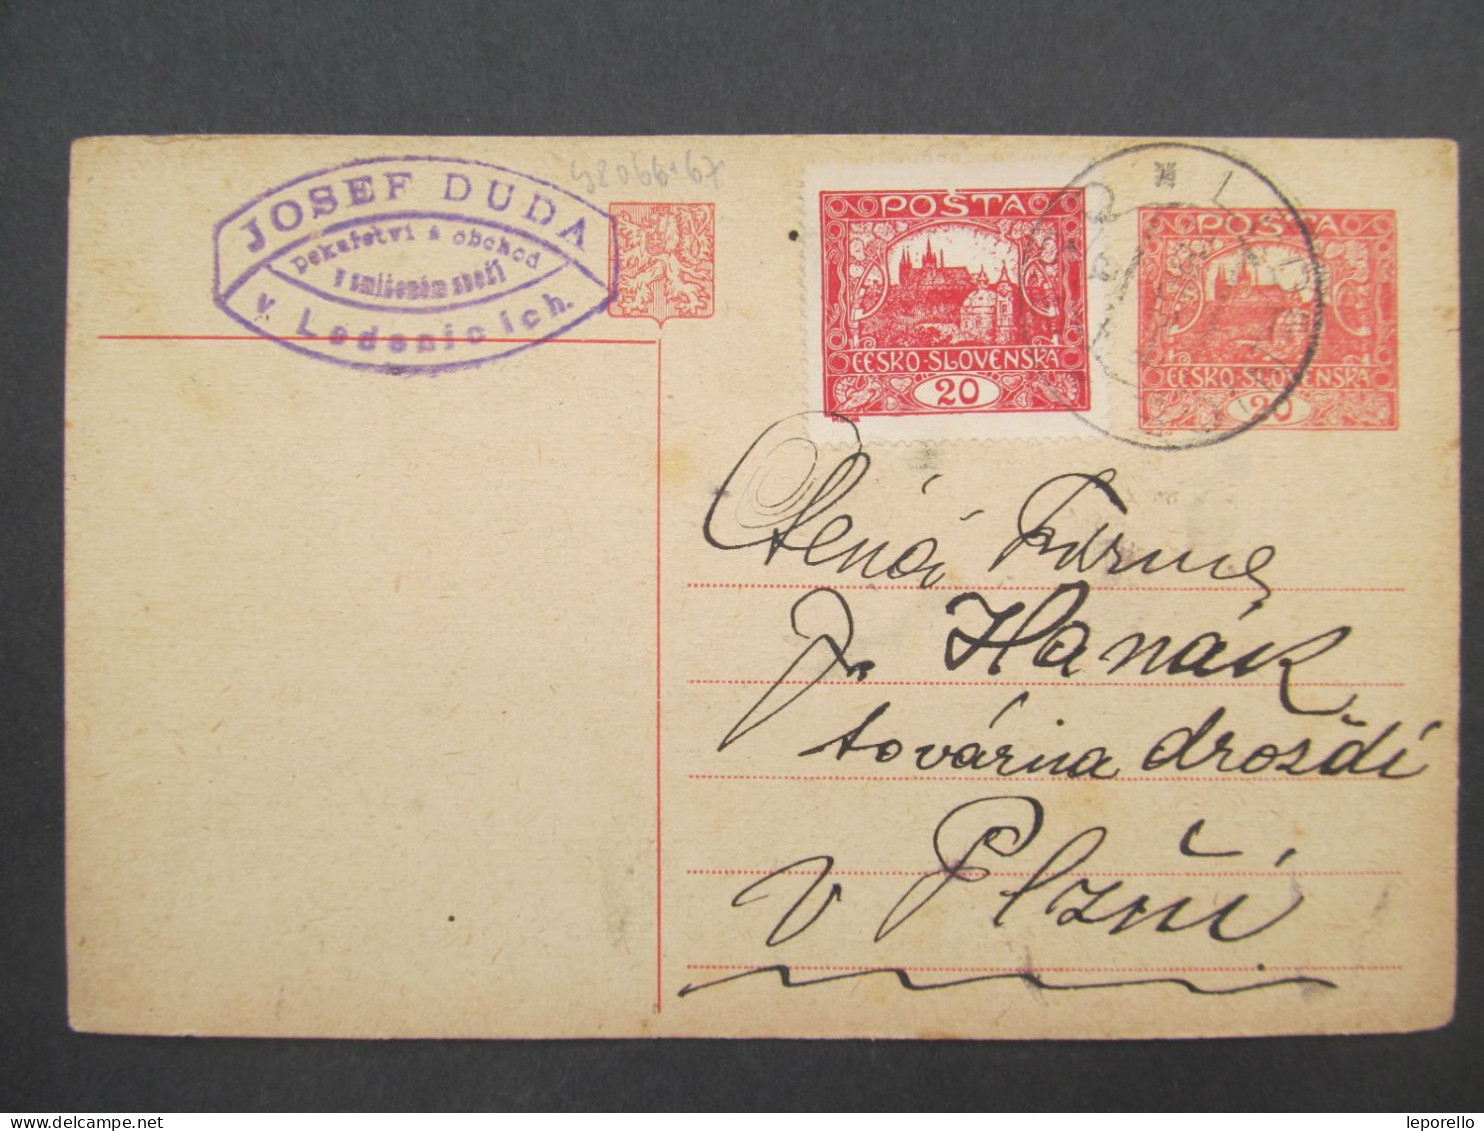 JOSEF DUDA
pekařství a obchod
v smíšeném zboží
v Ledenicích.
48066+67
POŠTA
ČESKO-SLOVENSKÁ
20
POŠTA
ČESKO-SLOVENSKÁ
20
Ctená Firma
Hanák
továrna droždí
v Plzni
leporello